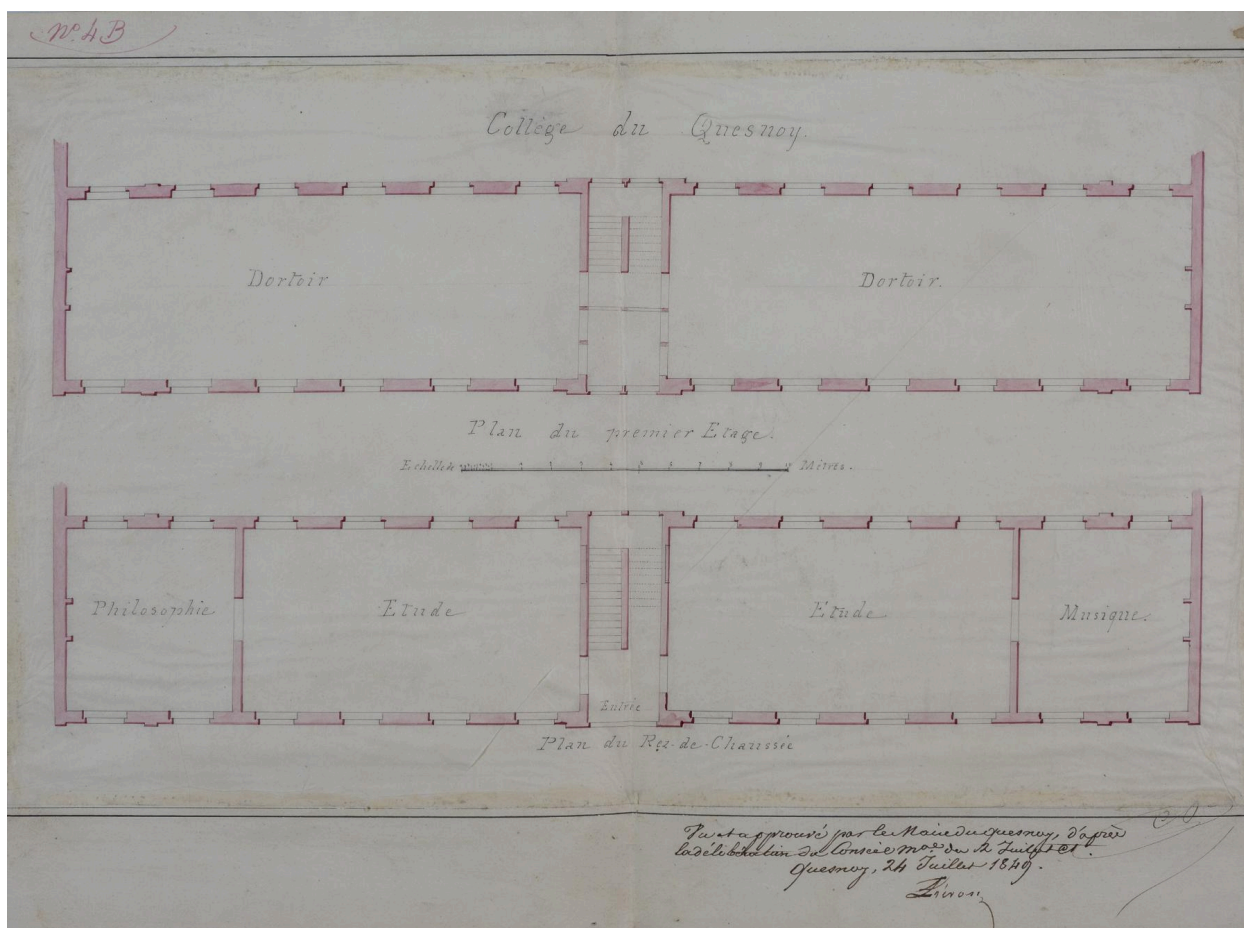 Nº 4 B
Collège du Quesnoy.
Dortoir
Dortoir.
Plan du premier Etage.
Echelle de
Mètres.
Philosophie
Etude
Etude
Musique.
Entrée
Plan du Rez-de-Chaussée
Vu et approuvé par le Maire du Quesnoy, d'après
la délibération du Conseil mal du Juillet ct.
Quesnoy, 24 Juillet 1849.